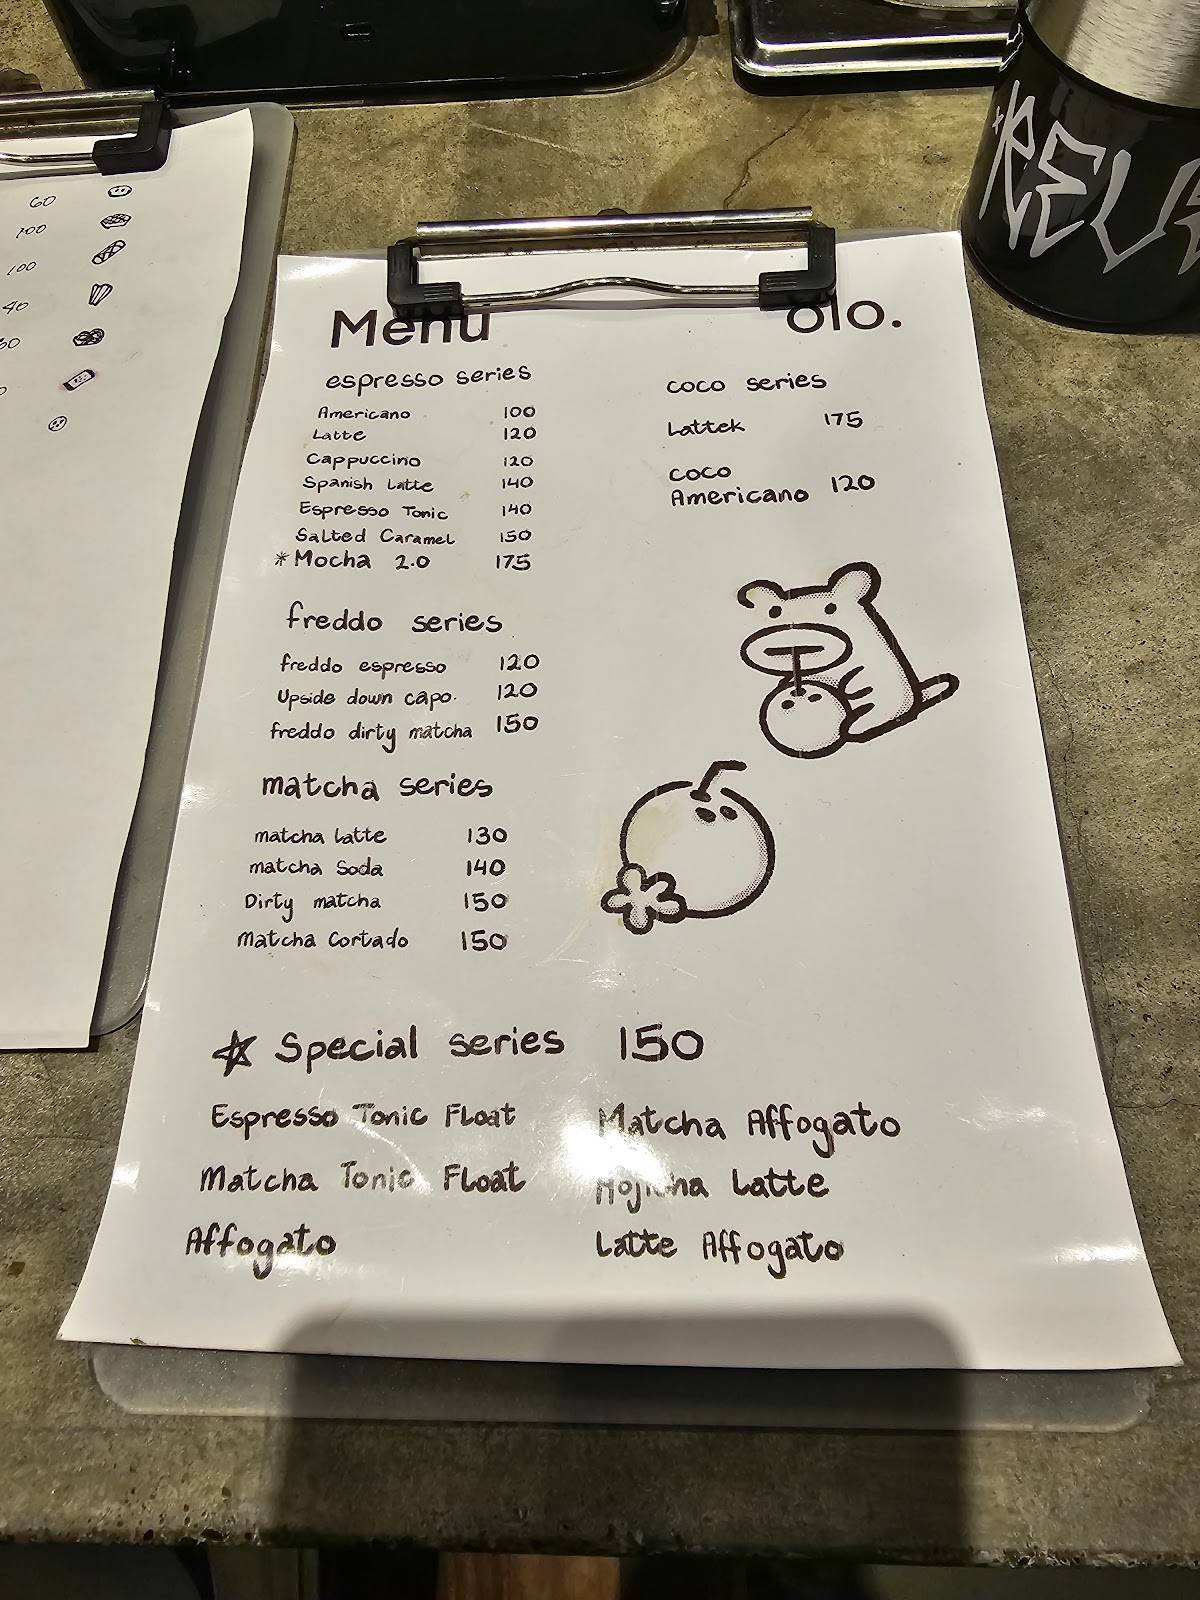 60
100
100
40
Menu
olo.
espresso series
Americano 100
Latte 120
Cappuccino 120
Spanish Latte 140
Espresso Tonic 140
Salted Caramel 150
*Mocha 2.0 175
freddo series
freddo espresso 120
Upside down capo. 120
freddo dirty matcha 150
matcha series
matcha latte 130
matcha Soda 140
Dirty matcha 150
Matcha Cortado 150
coco series
Lattek 175
coco
Americano 120
☆ Special series 150
Espresso Tonic Float
Matcha Tonic Float
Affogato
Matcha Affogato
Hojicha Latte
Latte Affogato